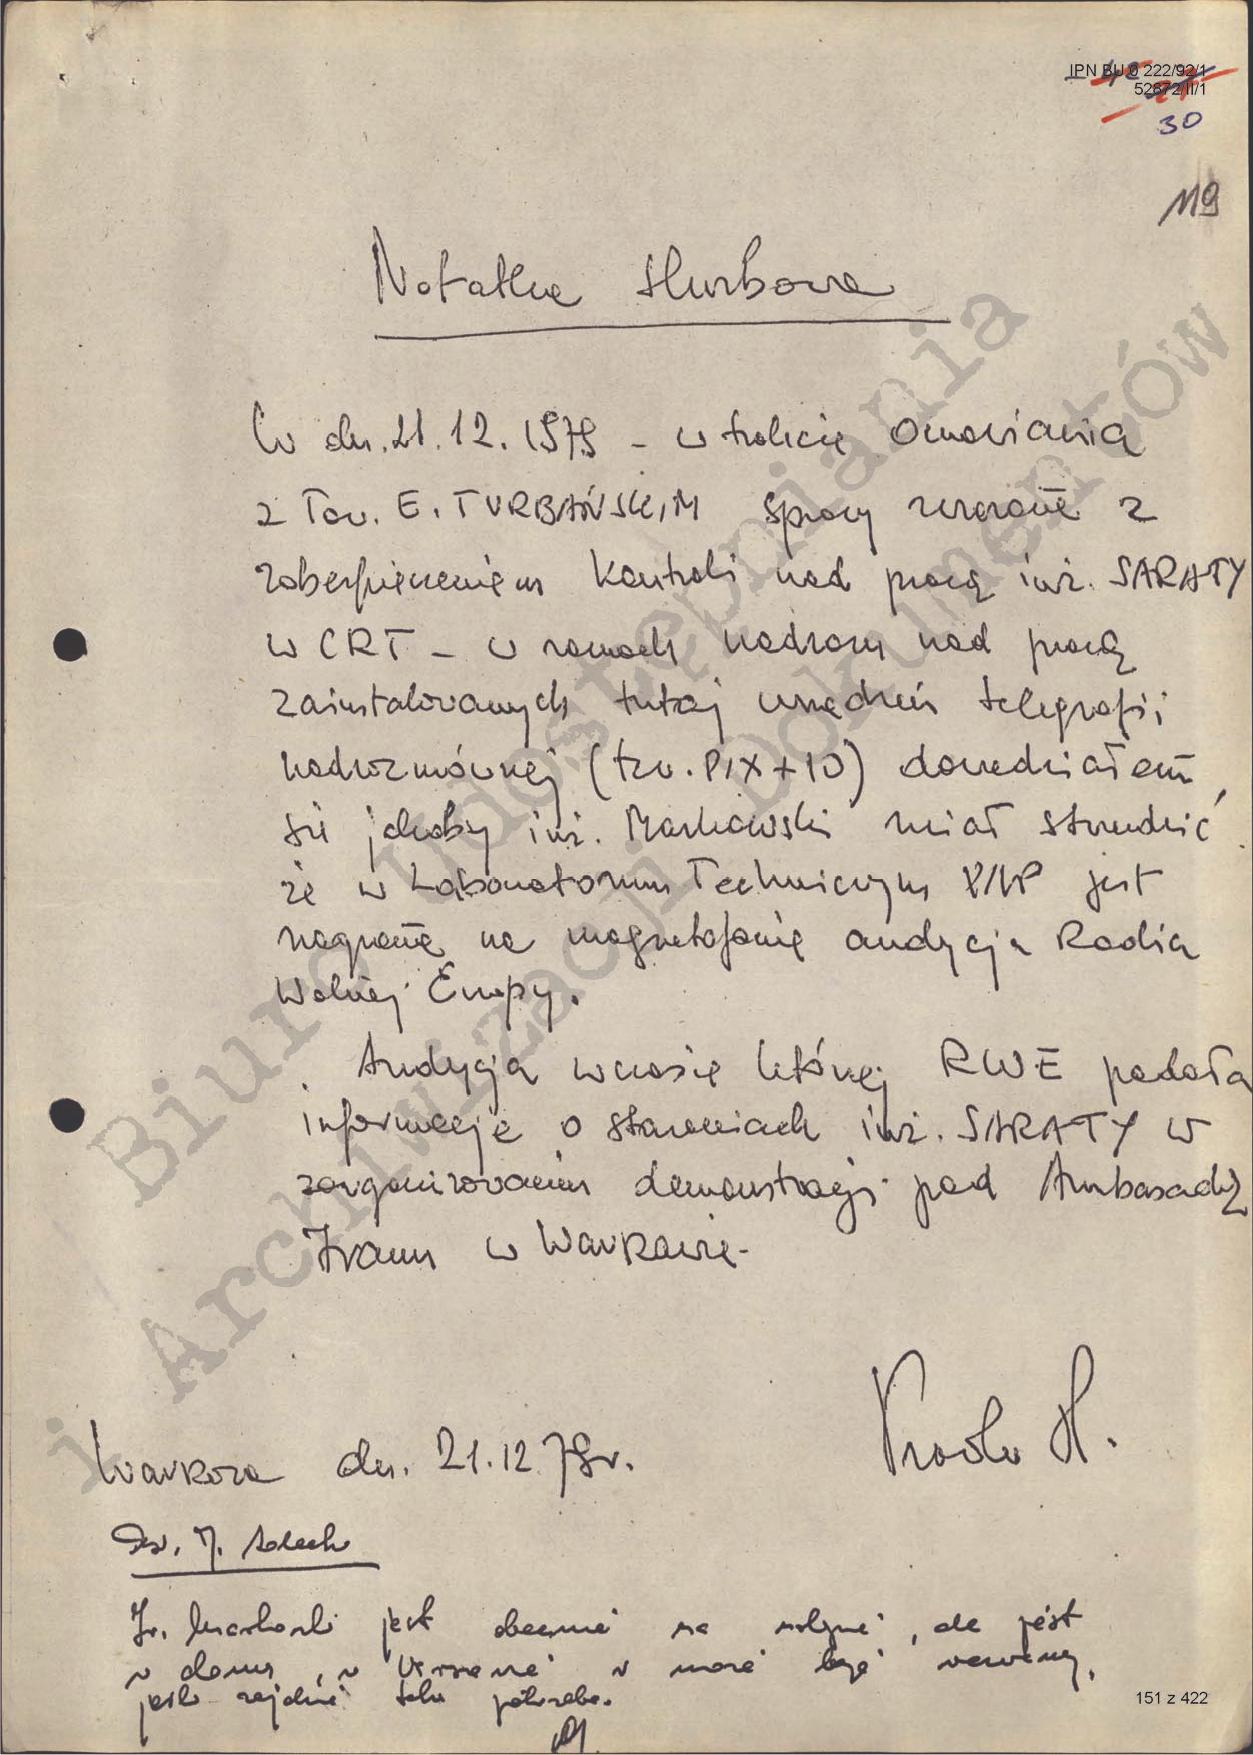 IPN BU 0 222/92/1
52872/II/1
30
119
Notatka służbowa
W dn. 21.12.1979 - w trakcie omawiania
z Tow. E. TURBAŃSKIM sprawy związane z
zabezpieczeniem kontroli nad pracą inż. SARATY
w CRT - w ramach nadzoru nad pracą
zainstalowanych tutaj urządzeń telegrafii
nadrozmównej (tzw. PIX+10) dowiedziałem
się jakoby inż. Markowski miał stwierdzić,
że w Laboratorium Technicznym jest
nagrane na magnetofonie audycja Radia
Wolnej Europy.
Audycja wczasie której RWE podała
informacje o staraniach inż. SARATY w
zorganizowaniu demonstracji pod Ambasadą
Iranu w Warszawie.
Warszawa dn. 21.12 79r.
jest obecnie na urlopie, ale jest
w domu, w Warszawie i może być wezwany,
jeśli zajdzie taka potrzeba.
151 z 422
Biuro Udostępniania
i Archiwizacji Dokumentów